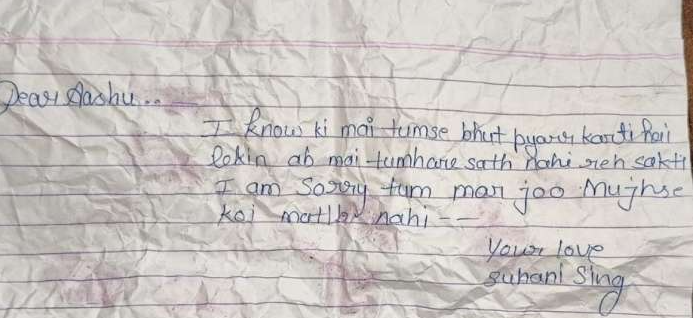 Dear Aashu..
I know ki mai tumse bhut pyar karti hai
lekin ab mai tumhare sath nahi reh sakti
I am Sorry tum mar joo Mujhse
koi nahi --
Your love
Suhani Sing